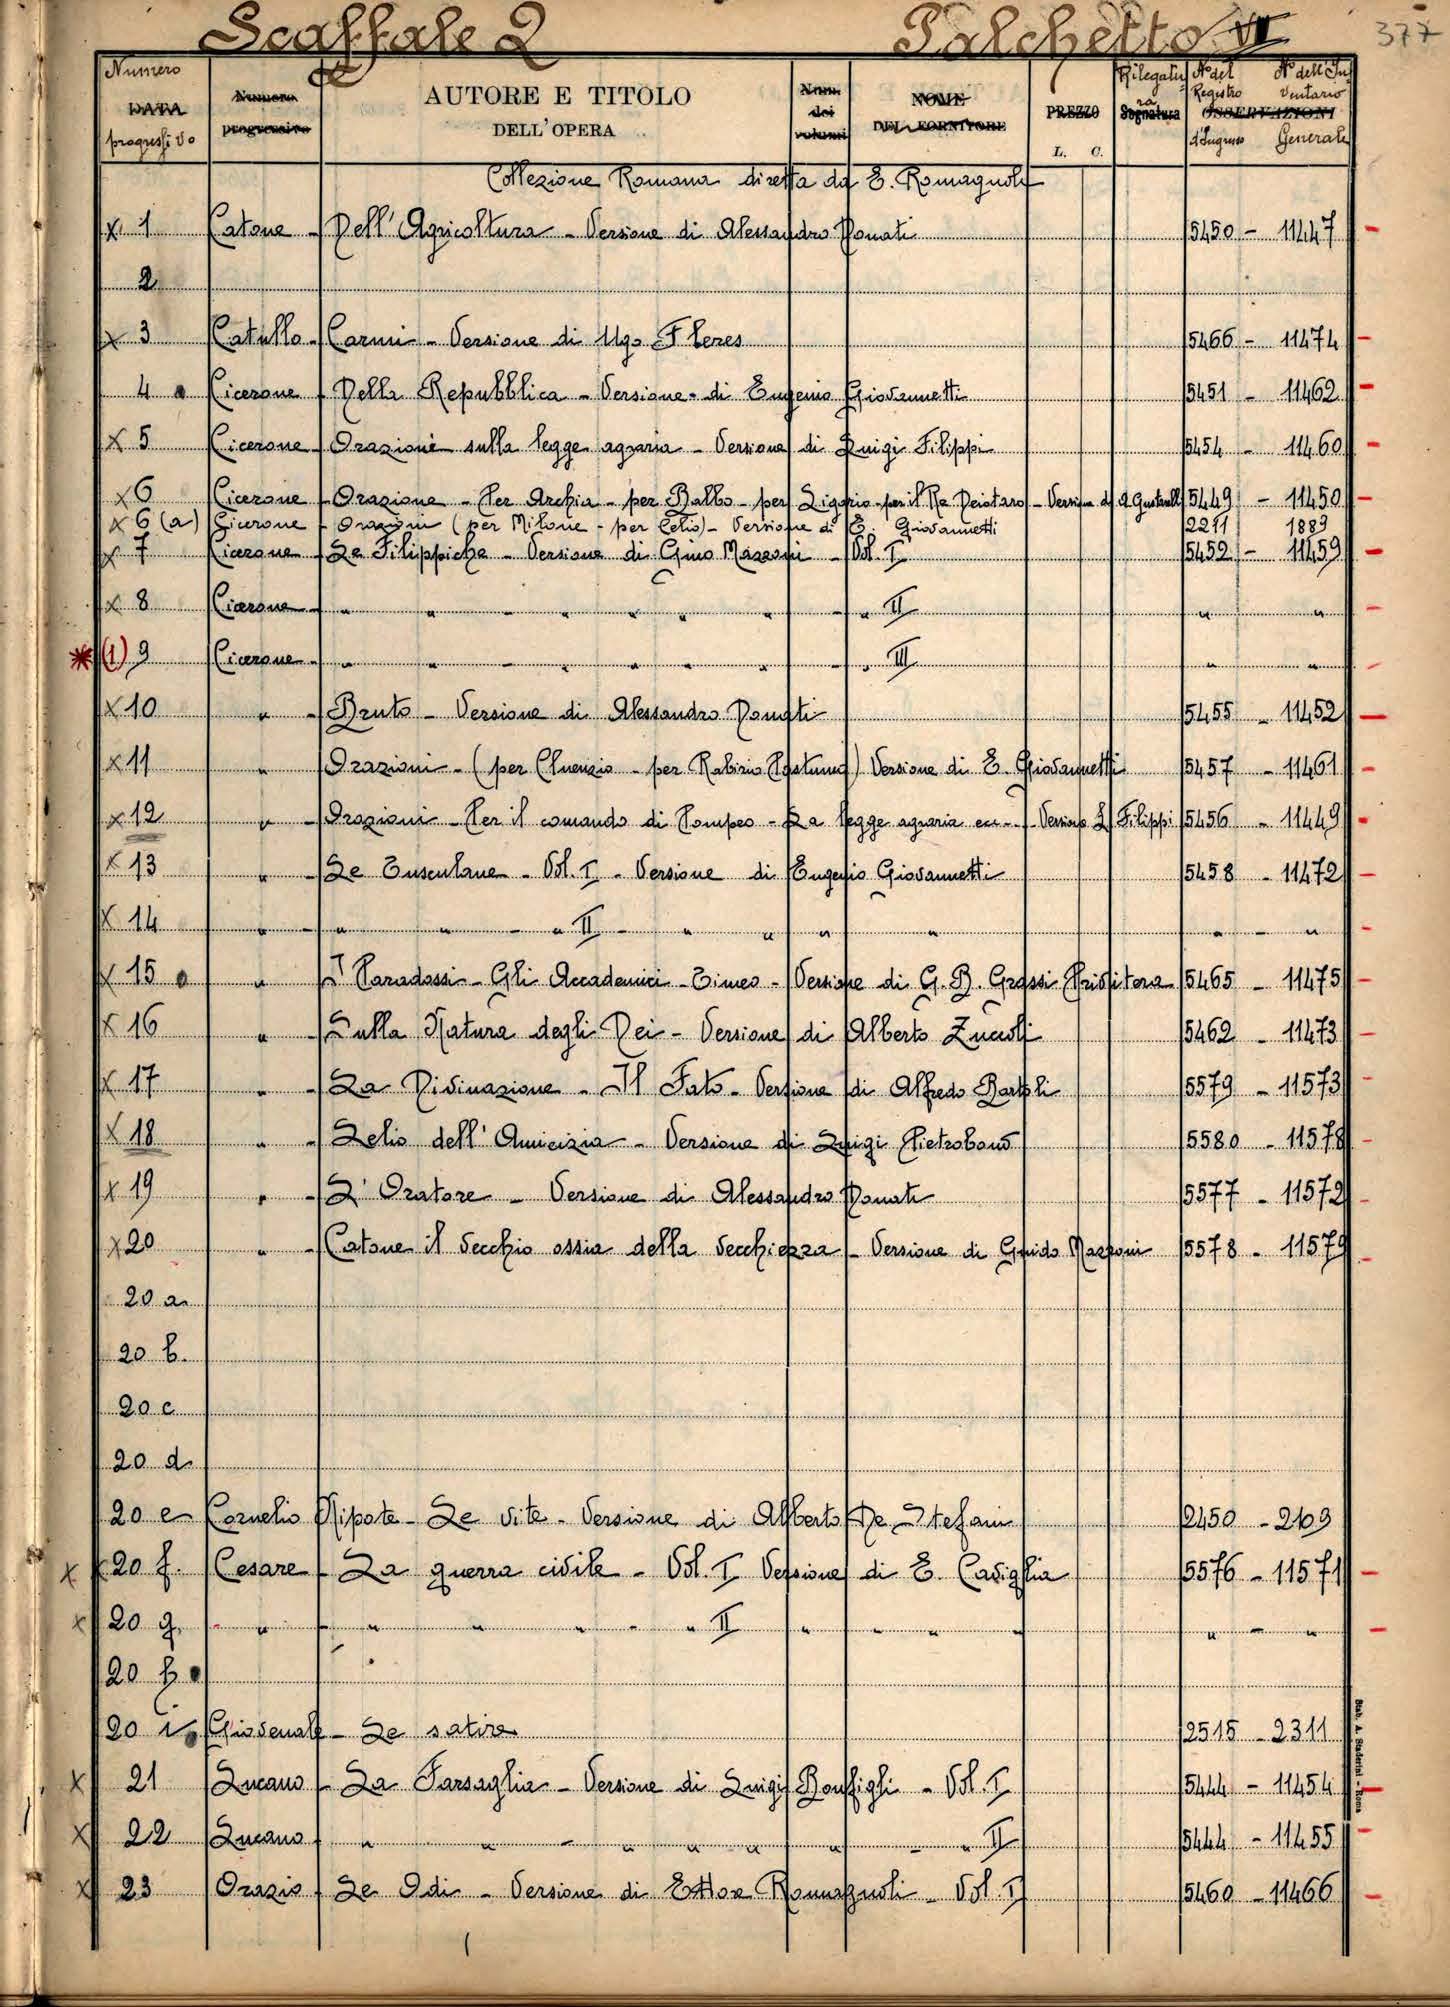 Scaffale 2 Palchetto VI 377
Numero DATA progressivo Numero progressivo AUTORE E TITOLO DELL'OPERA Num. dei volumi NOME DEL FORNITORE PREZZO L. C. Rilegatura Segnatura N° del Registro d'Ingresso OSSERVAZIONI N° dell'Inventario Generale
Collezione Romana diretta da E. Romagnoli
x 1 Catone - Dell'Agricoltura - Versione di Alessandro Donati 5450 - 11447
2
x 3 Catullo - Carmi - Versione di Ugo Fleres 5466 - 11474
4 Cicerone - Della Repubblica - Versione di Eugenio Giovannetti 5451 - 11462
x 5 Cicerone - Orazione sulla legge agraria - Versione di Luigi Filippi 5454 - 11460
x 6 Cicerone - Orazione - Per Archia - per Balbo - per Ligario - per il Re Deiotaro - Version d 5449 - 11450
x 6 (a) Cicerone - Orazioni (per Milone - per Celio) - Versione di E. Giovannetti 2211 1889
x 7 Cicerone - Le Filippiche - Versione di Gino Mazzoni - Vol. I 5452 - 11459
x 8 Cicerone - " " - " " " " - " II " "
* (1) 9 Cicerone - " " - " " " " - " III " "
x 10 " - Bruto - Versione di Alessandro Donati 5455 - 11452
x 11 " Orazioni - (per Cluenzio - per Rabirio Postumo) Versione di E. Giovannetti 5457 - 11461
x 12 " - Orazioni - Per il comando di Pompeo - La legge agraria ecc - Version L Filippi 5456 - 11449
x 13 " - Le Tusculane - Vol. I - Versione di Eugenio Giovannetti 5458 - 11472
x 14 " - " " - " II - " " " " " - "
x 15 " I Paradossi - Gli Accademici - Timeo - Versione di G. B. Grassi Privitera 5465 - 11475
x 16 " - Sulla Natura degli Dei - Versione di Alberto Zuccoli 5462 - 11473
x 17 " - La Divinazione - Il Fato - Versione di Alfredo Bartoli 5579 - 11573
x 18 " - Lelio dell'Amicizia - Versione di Luigi Pietrobono 5580 - 11578
x 19 " - L'Oratore - Versione di Alessandro Donati 5577 - 11572
x 20 " - Catone il Vecchio ossia della Vecchiezza - Versione di Guido Mazzoni 5578 - 11579
20 a
20 b.
20 c
20 d
20 e Cornelio Nipote - Le Vite - Versione di Alberto De Stefani 2450 - 2109
x x 20 f. Cesare - La guerra civile - Vol. I Versione di E. Caviglia 5576 - 11571
x 20 g. - " - " " " - " II " " " - " - "
20 h
20 i Giovenale - Le satire 2515 - 2311
x 21 Lucano - La Farsaglia - Versione di Luigi Bonfigli - Vol. I 5444 - 11454
x 22 Lucano - " " - " " " " - " II 5444 - 11455
x 23 Orazio - Le Odi - Versione di Ettore Romagnoli - Vol. I 5460 - 11466
Stab. A. Staderini - Roma